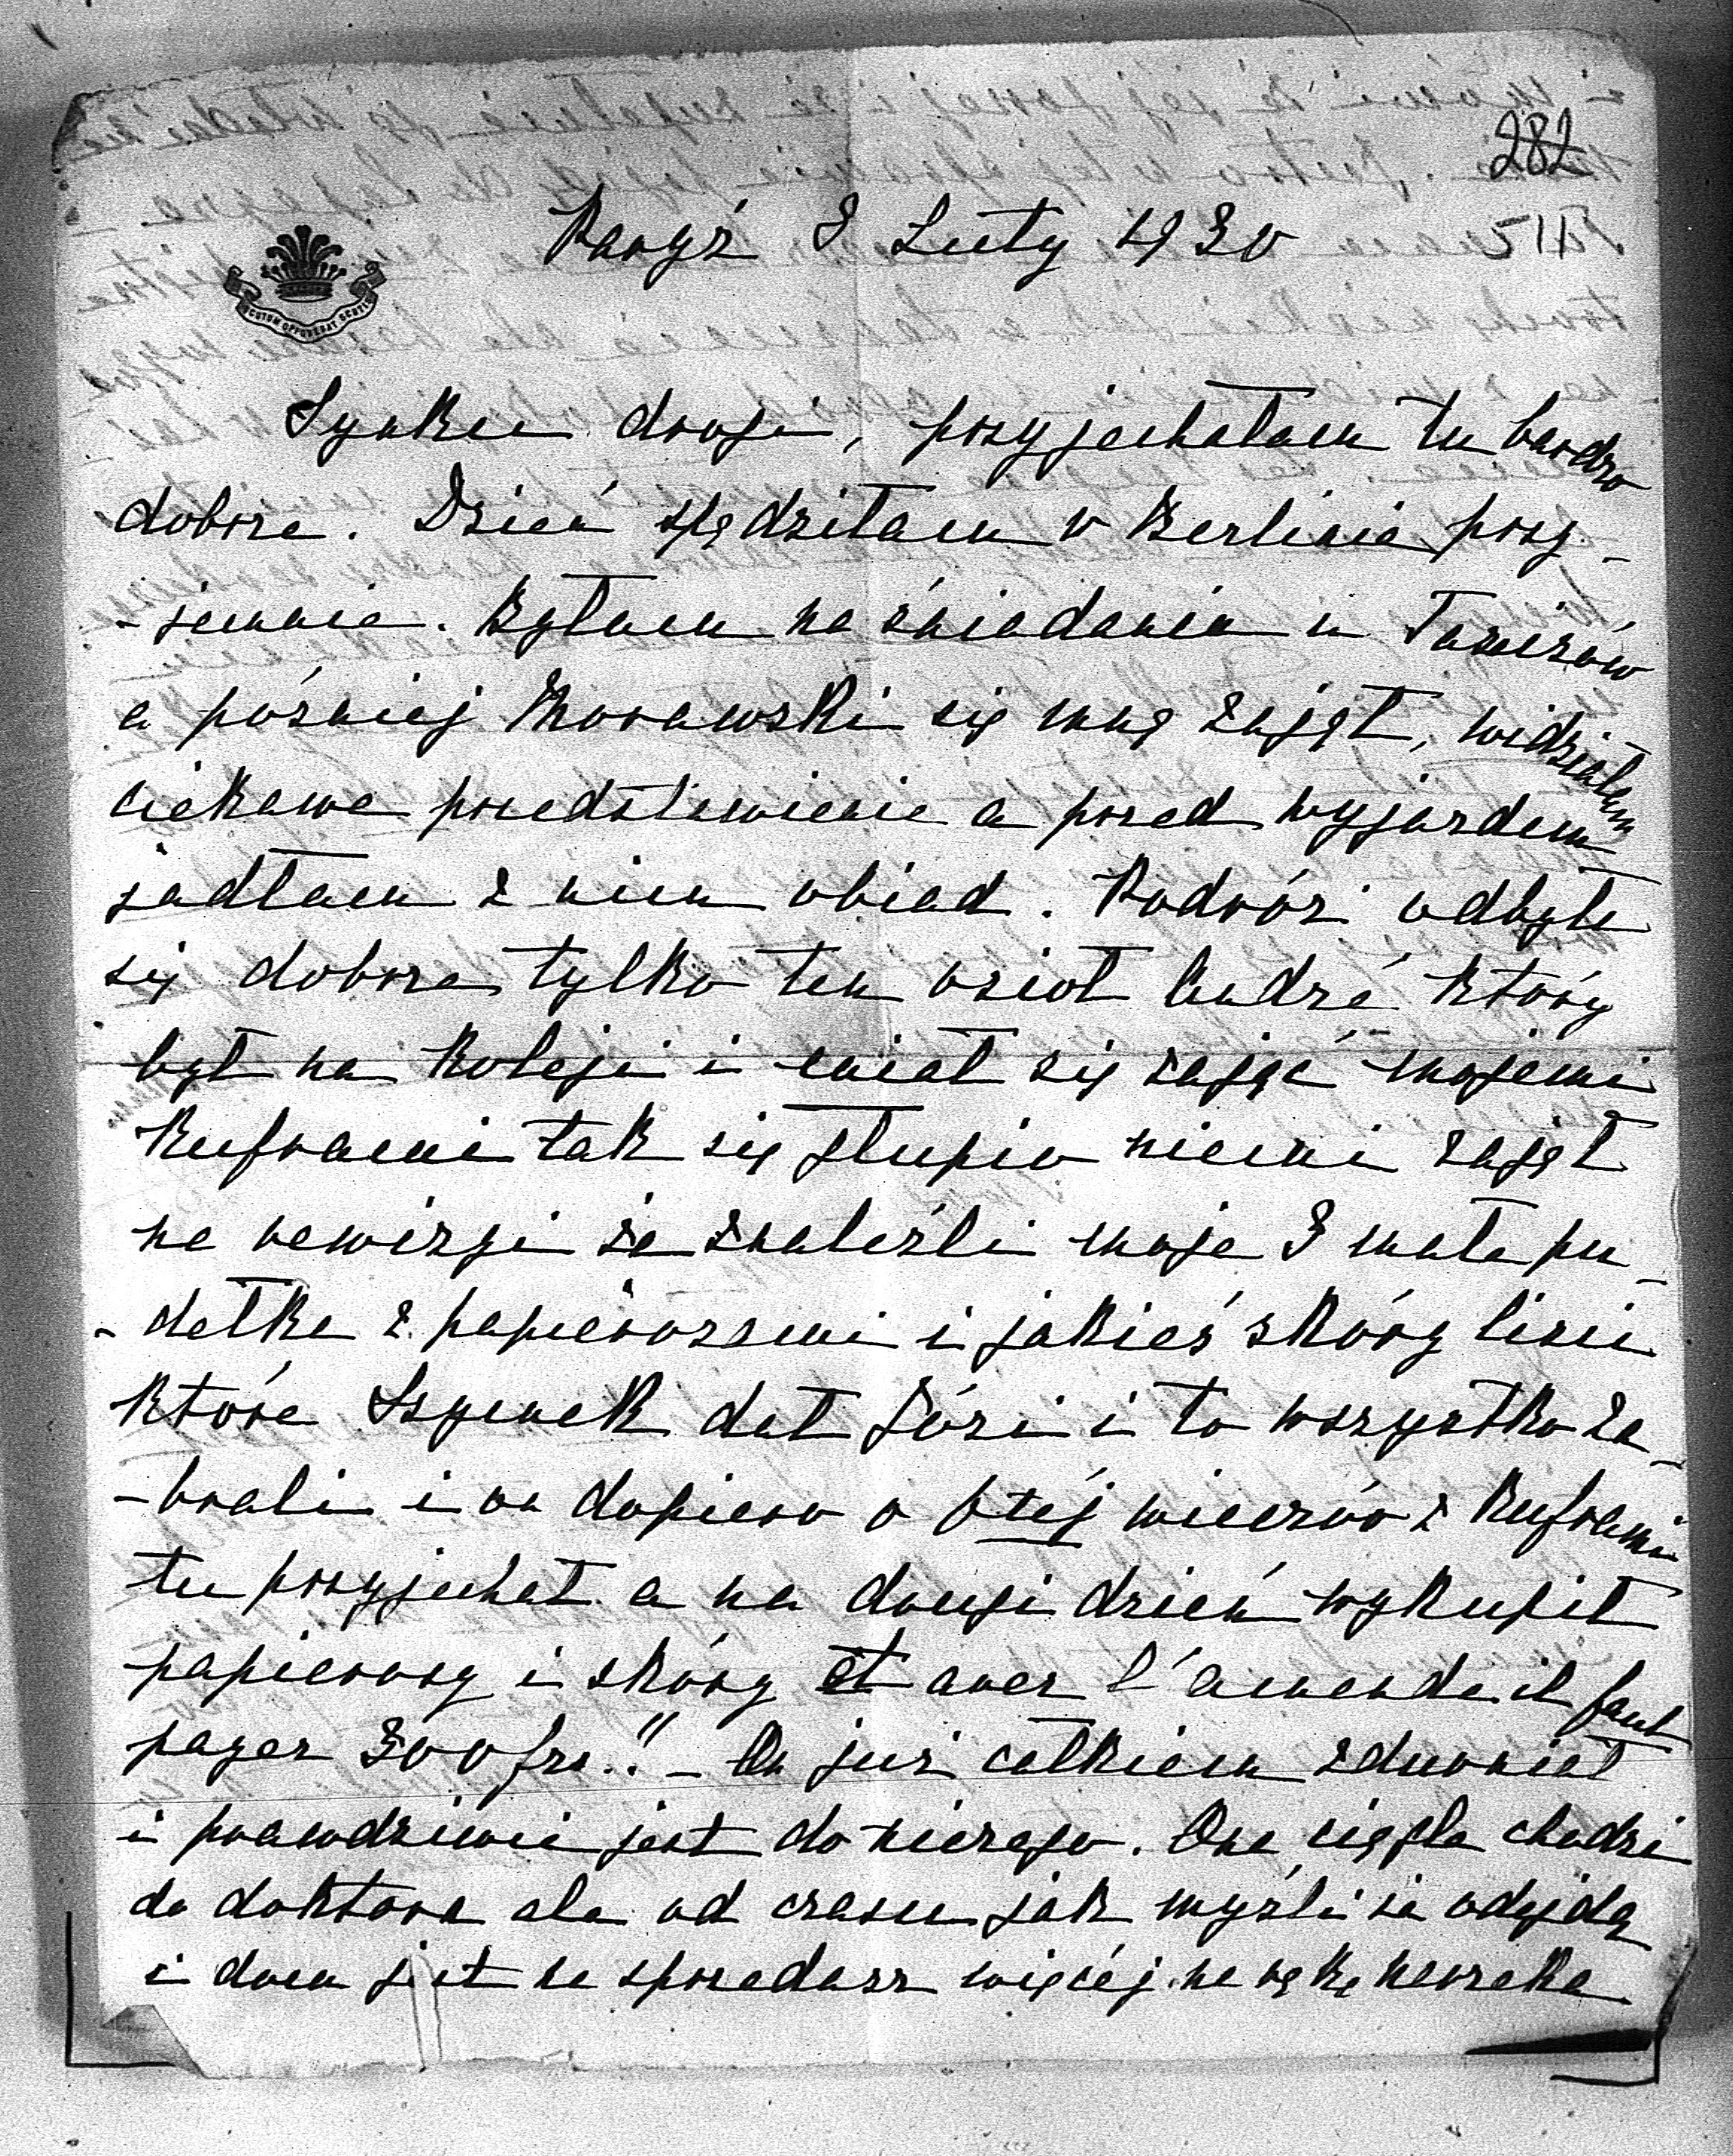 282
514
Paryż 3 Luty 1930
SCUTUM OPPONEBAT SCUTIS
Synku drogi, przyjechałam tu bardzo
dobrze. Dzień spędziłam w Berlinie przy-
-jemnie. Byłam na śniadaniu u
a później Morawski się mną zajął, widziałam
ciekawe przedstawienie a przed wyjazdem
jadłam z nim obiad. Podróż odbyła
się dobrze tylko ten osioł André który
był na kolei i miał się zająć mojemi
kuframi tak się głupio niemi zajął
na rewizyi że znaleźli moje 3 małe pu-
-dełka z papierosami i jakieś skóry lisie
które Szymek dał Józi i to wszystko za-
-brali i on dopiero o 6téj wieczór z kuframi
tu przyjechał a na drugi dzień wykupił
papierosy i skóry et avec l'amende il faut
payer 300 frs." – On już całkiem zdurniał
i prawdziwie jest do niczego. Ona ciągle chodzi
do doktora ale od czasu jak myśli że odejdą
i dom jest na sprzedasz więcéj na rękę narzeka